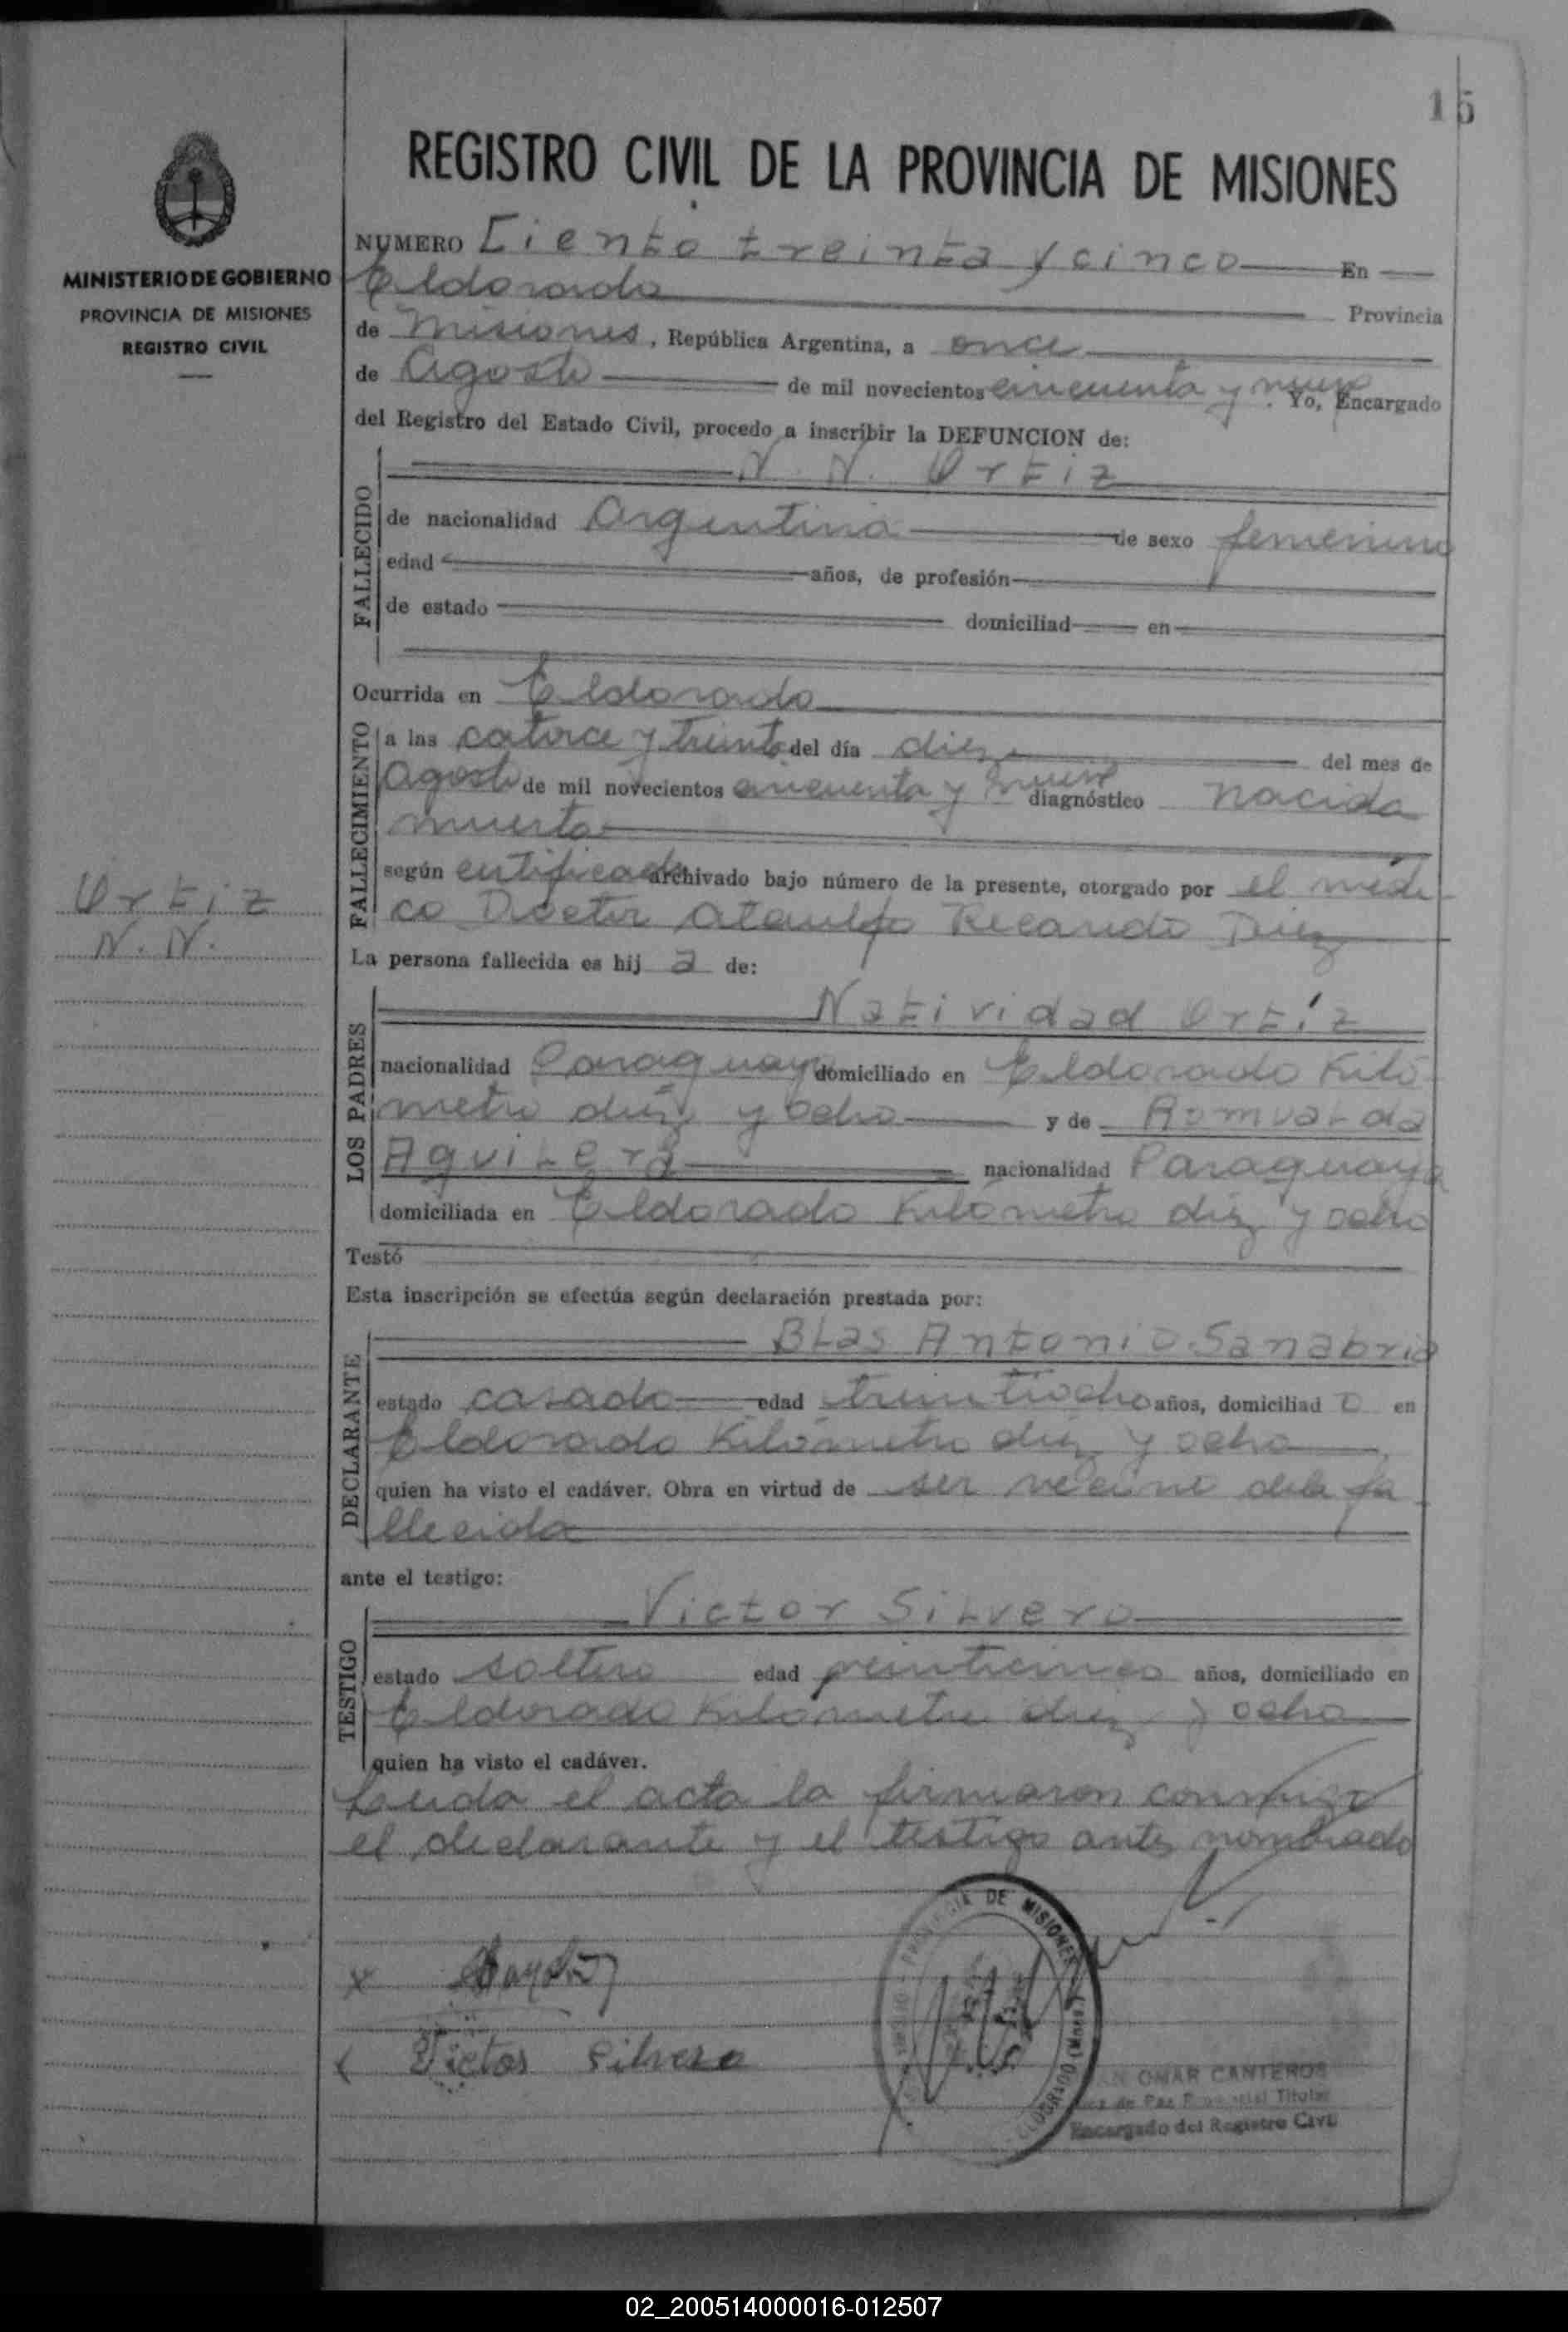 15
REGISTRO CIVIL DE LA PROVINCIA DE MISIONES
MINISTERIO DE GOBIERNO
PROVINCIA DE MISIONES
REGISTRO CIVIL
NUMERO Ciento treinta y cinco En
Eldorado Provincia
de Misiones, República Argentina, a once
de Agosto de mil novecientos cincuenta y nueve. Yo, Encargado
del Registro del Estado Civil, procedo a inscribir la DEFUNCION de:
FALLECIDO
N. N. Ortiz
de nacionalidad Argentina de sexo femenino
edad años, de profesión
de estado domiciliad en
Ocurrida en Eldorado
FALLECIMIENTO
a las catorce y treinta del día diez del mes de
Agosto de mil novecientos cincuenta y nueve diagnóstico nacida
muerta
según certificado archivado bajo número de la presente, otorgado por el médi
co Doctor Ataulfo Recaredo Diez
Ortiz
N. N.
La persona fallecida es hij a de:
LOS PADRES
Natividad Ortíz
nacionalidad Paraguayo domiciliado en Eldorado Kiló
metro diez y ocho y de Romualda
Aguilera nacionalidad Paraguaya
domiciliada en Eldorado Kilómetro diez y ocho
Testó
Esta inscripción se efectúa según declaración prestada por:
DECLARANTE
Blas Antonio Sanabria
estado casado edad treintiocho años, domiciliad o en
Eldorado Kilómetro diez y ocho
quien ha visto el cadáver. Obra en virtud de ser vecino de la fa
llecida
ante el testigo:
TESTIGO
Victor Silvero
estado soltero edad veinticinco años, domiciliado en
Eldorado Kilómetro diez y ocho
quien ha visto el cadáver.
Leida el acta la firmaron conmigo
el declarante y el testigo antes nombrado
PROVINCIA DE MISIONES
ELDORADO (Mnes.)
Victor Silvero
OMAR CANTEROS
Juez de Paz Provincial Titular
Encargado del Registro Civil
02_200514000016-012507